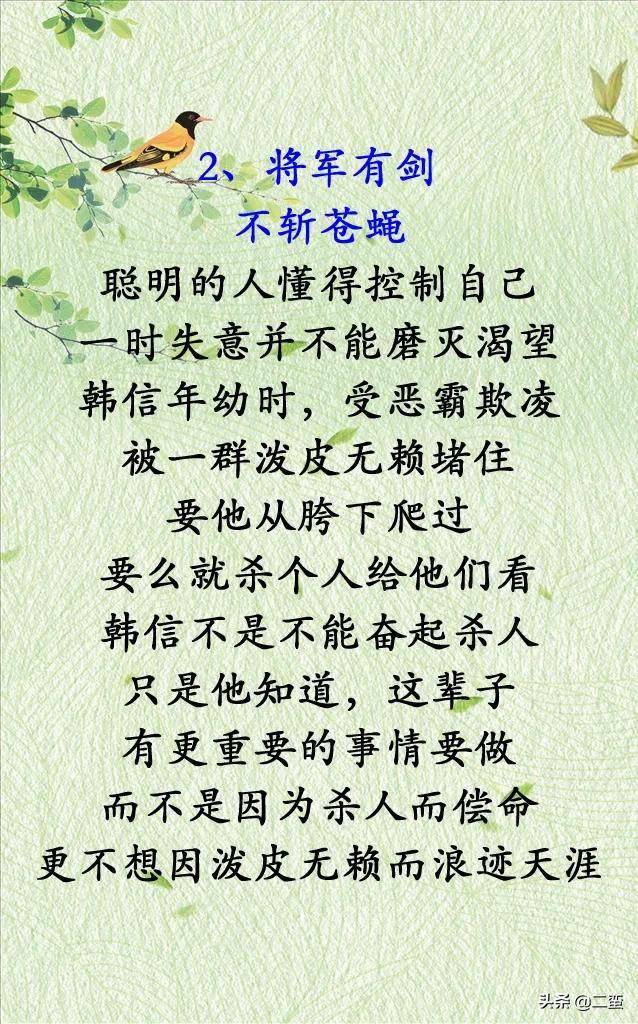 2、将军有剑
不斩苍蝇
聪明的人懂得控制自己
一时失意并不能磨灭渴望
韩信年幼时，受恶霸欺凌
被一群泼皮无赖堵住
要他从胯下爬过
要么就杀个人给他们看
韩信不是不能奋起杀人
只是他知道，这辈子
有更重要的事情要做
而不是因为杀人而偿命
更不想因泼皮无赖而浪迹天涯
头条 @二蛮